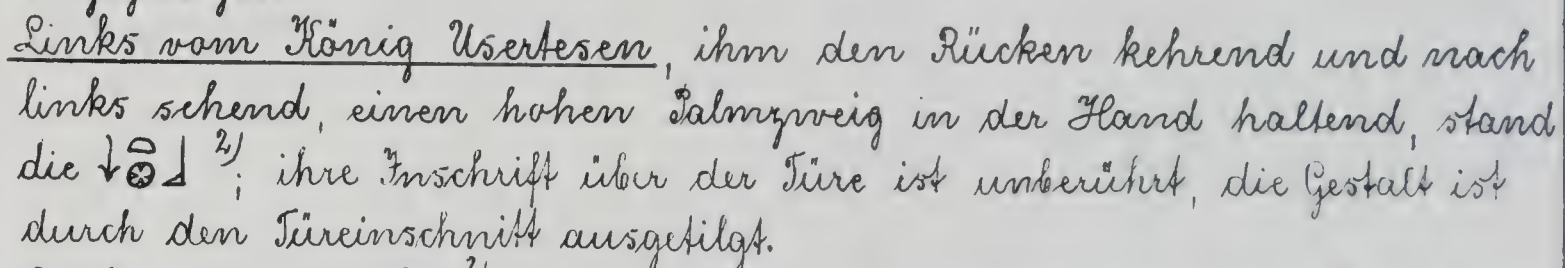 Links vom König Usertesen, ihm den Rücken kehrend und nach
links sehend, einen hohen Palmzweig in der Hand haltend, stand
die 2); ihre Inschrift über der Türe ist unberührt, die Gestalt ist
durch den Türeinschnitt ausgetilgt.